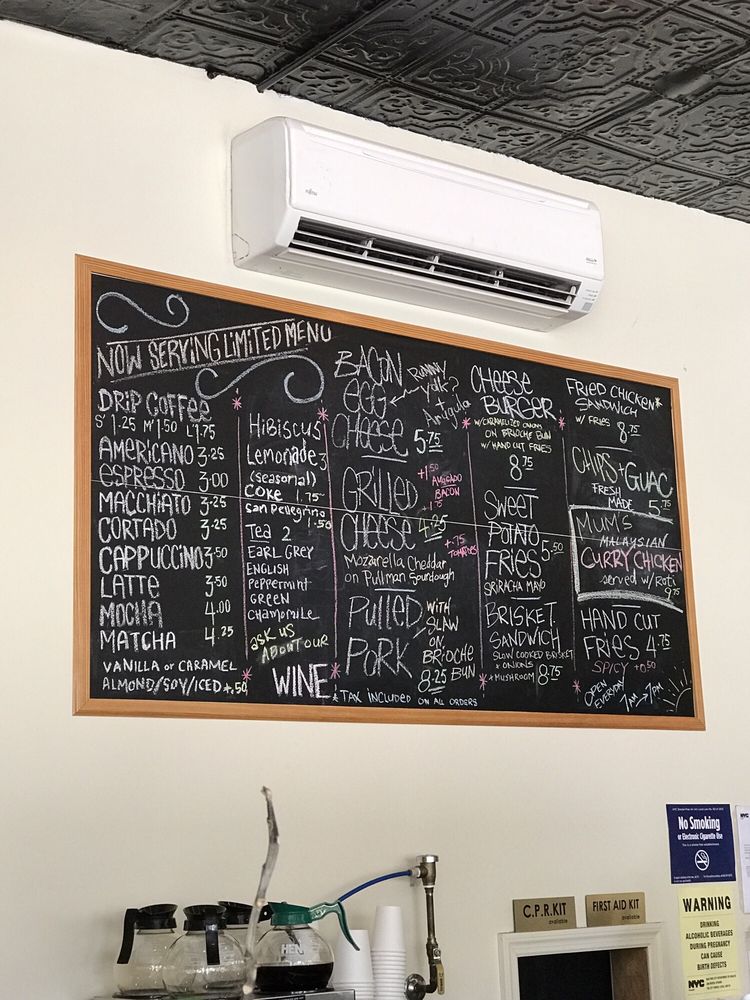 FUJITSU
NOW SERVING LIMITED MENU
DRIP COFFEE
S' 1.25 M'1.50 L'1.75
AMERICANO 3.25
ESPRESSO 3.00
MACCHIATO 3.25
CORTADO 3.25
CAPPUCCINO 3.50
LATTE 3.50
MOCHA 4.00
MATCHA 4.25
VANILLA or CARAMEL
ALMOND/SOY/ICED +.50
HIBISCUS
Lemonade 3
(seasonal)
COKE 1.75
San Pellegrino
1.50
Tea 2
EARL GREY
ENGLISH
PEPPERMINT
GREEN
CHAMOMILE
ASK US
ABOUT OUR
WINE
BACON
EGG
CHEESE 5.75
RUNNY
YOLK?
+ Arugula
GRILLED
CHEESE 4.25
+1.50
AVOCADO
BACON
+1.75
+.75
TOMATOES
Mozzarella Cheddar
on Pullman Sourdough
PULLED
PORK
WITH
SLAW
ON
BRIOCHE
BUN
8.25
* TAX INCLUDED ON ALL ORDERS
CHEESE
BURGER
W/ CARAMELIZED ONIONS
ON BRIOCHE BUN
W/ HAND CUT FRIES
8.75
SWEET
POTATO
FRIES 5.50
SRIRACHA MAYO
BRISKET
SANDWICH
SLOW COOKED BRISKET
+ ONIONS
+ MUSHROOM 8.75
FRIED CHICKEN
SANDWICH
W/ FRIES
8.75
CHIPS + GUAC
FRESH
MADE 5.75
MUM'S
MALAYSIAN
CURRY CHICKEN
served w/ Roti
9.75
HAND CUT
FRIES 4.75
SPICY +0.50
OPEN
EVERYDAY
7AM-7PM
C.P.R. KIT
available
FIRST AID KIT
available
No Smoking
or Electronic Cigarette Use
WARNING
DRINKING
ALCOHOLIC BEVERAGES
DURING PREGNANCY
CAN CAUSE
BIRTH DEFECTS
NYC
NYC